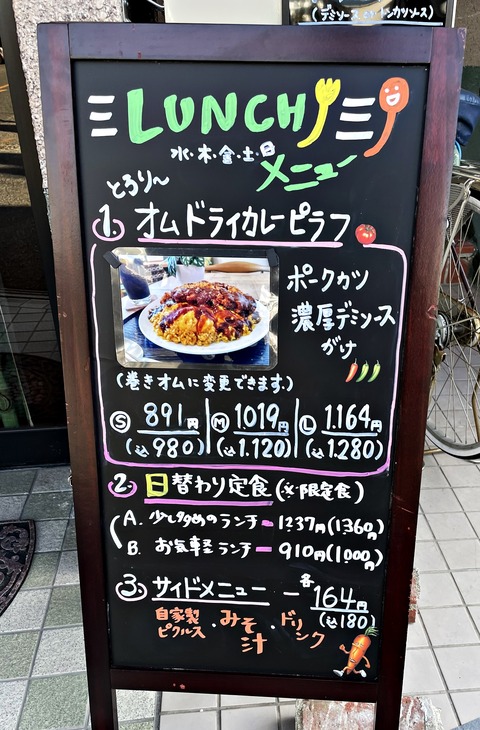 (デミソース or トンカツソース)
LUNCH
水・木・金・土・日
メニュー
とろり〜
1. オムドライカレーピラフ
ポークカツ
濃厚デミソース
がけ
(巻きオムに変更できます。)
Ⓢ 891円 Ⓜ 1019円 Ⓛ 1.164円
(込980) (込1.120) (込1.280)
2. 日替わり定食(※限定食)
A. 少し多めのランチ - 1237円(1360円)
B. お気軽ランチ - 910円(1000円)
3. サイドメニュー - 各164円
(込180)
自家製ピクルス・みそ汁・ドリンク